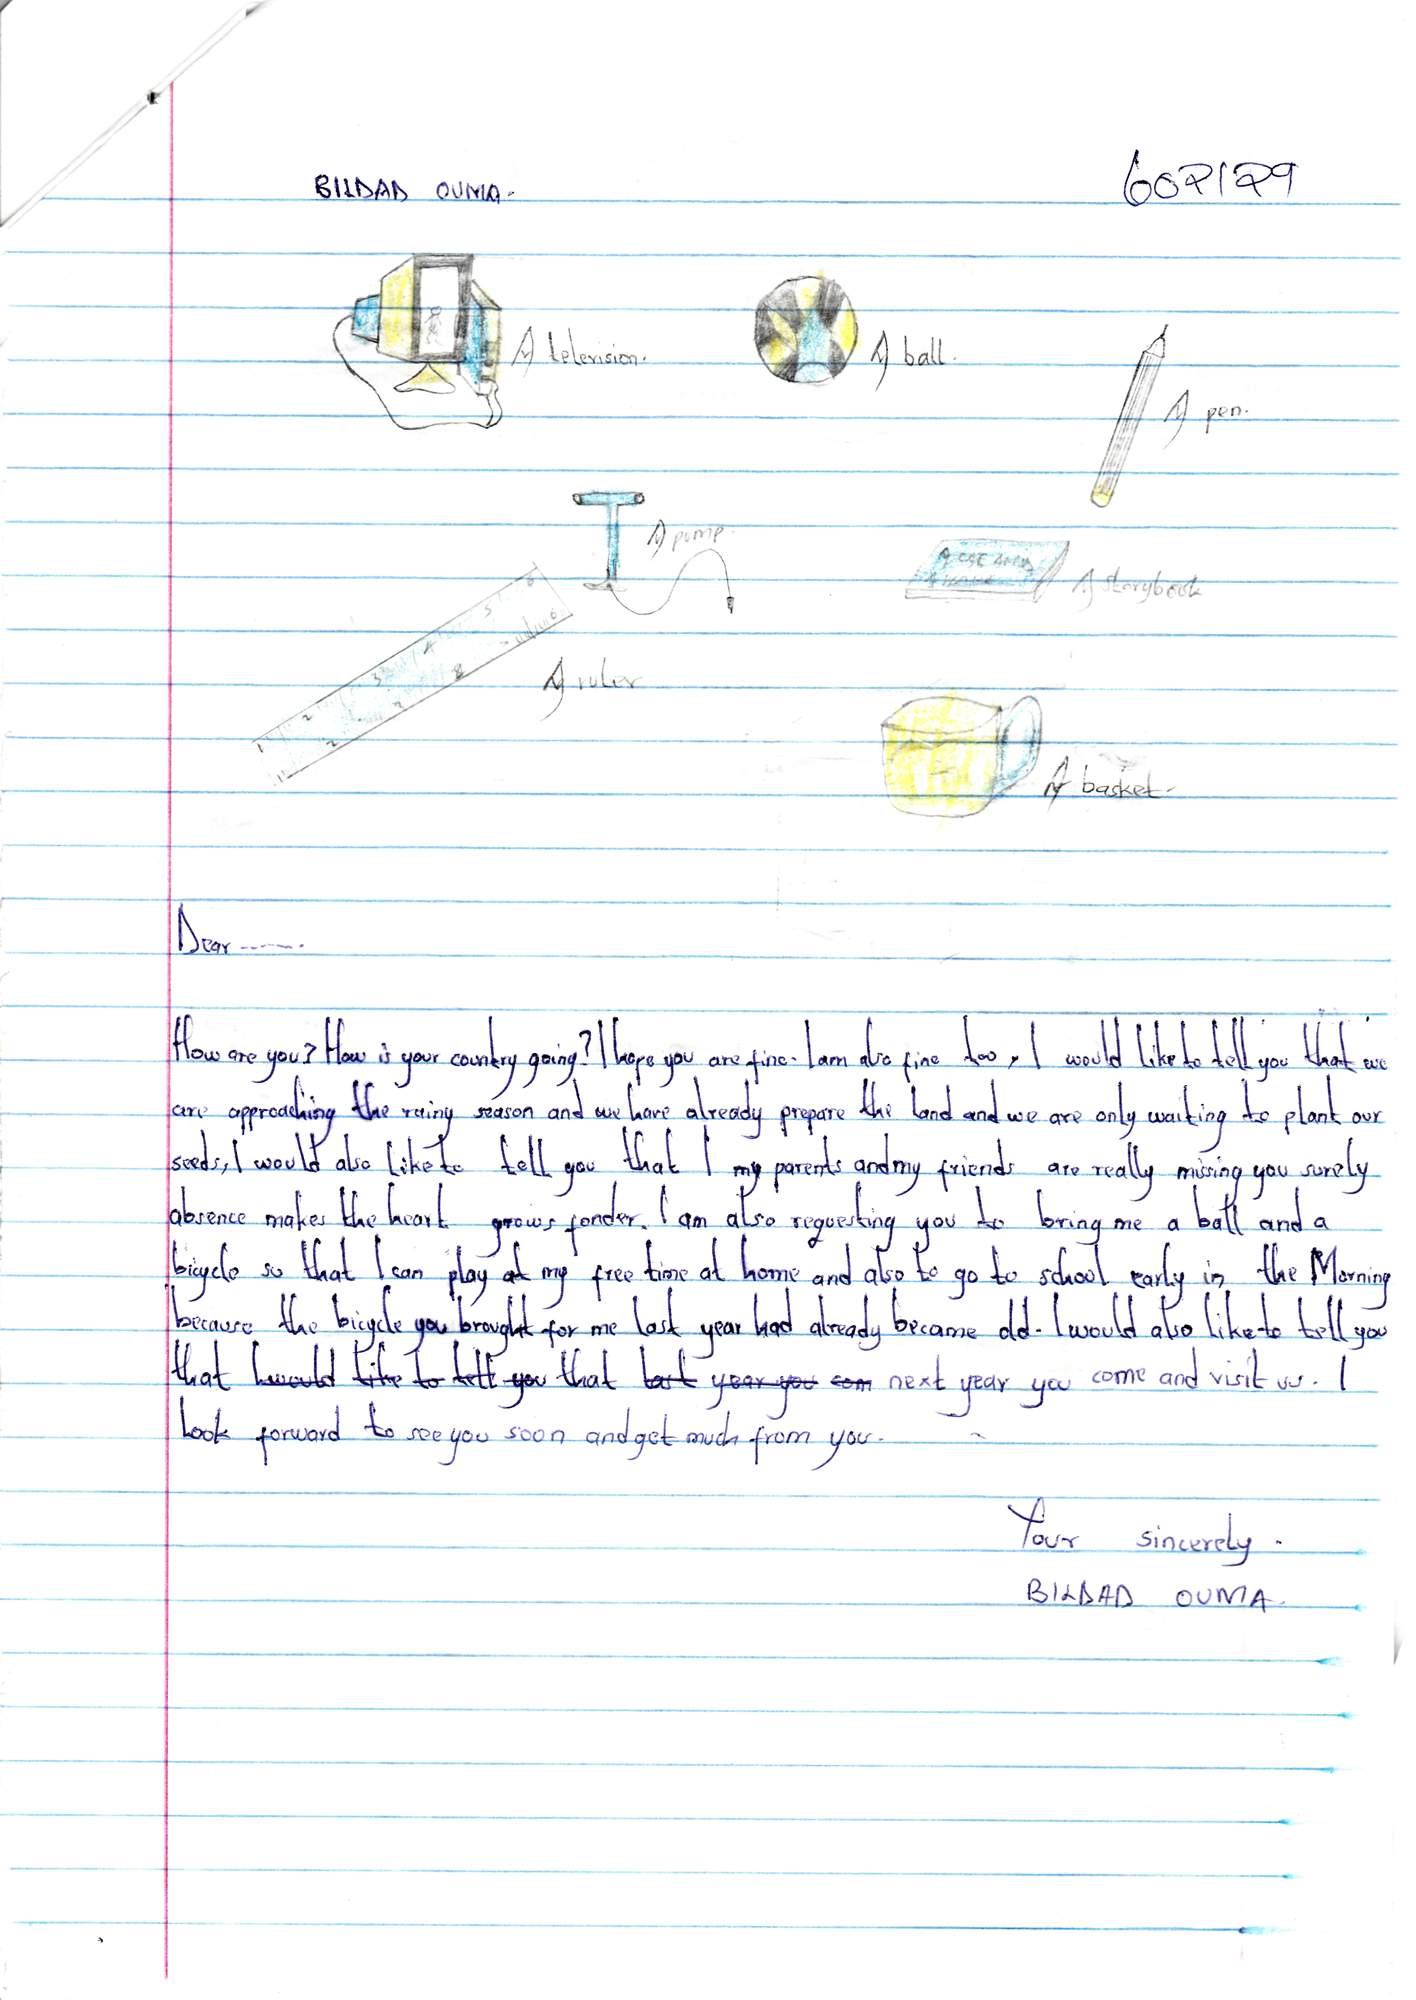 BILDAD OUMA.
602129
A television.
A ball.
A pen.
A pump.
A storybook
1 2 3 4 5 6
A ruler
A basket.
Dear -------.
How are you? How is your country going? I hope you are fine. I am also fine too, I would like to tell you that we
are approaching the rainy season and we have already prepare the land and we are only waiting to plant our
seeds, I would also like to tell you that I my parents and my friends are really missing you surely
absence makes the heart grows fonder. I am also requesting you to bring me a ball and a
bicycle so that I can play at my free time at home and also to go to school early in the Morning
because the bicycle you brought for me last year had already became old. I would also like to tell you
that I would like to tell you that last year you com next year you come and visit us. I
look forward to see you soon and get much from you.
Your sincerely.
BILDAD OUMA.